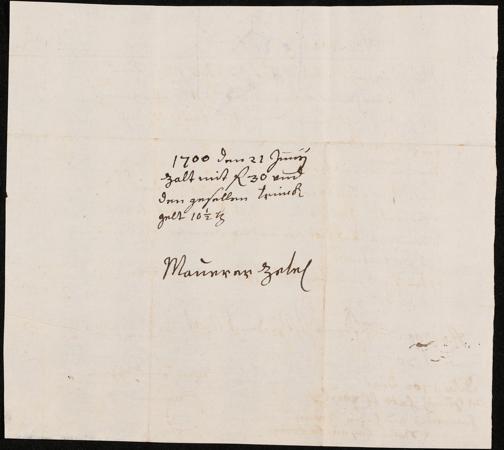 1700 den 21 Junÿ
zalt mit fl 30 und
den gesellen trinck
gelt 10 ½ ß
Maurerer Zetel